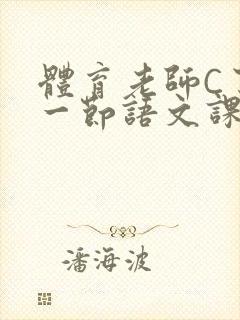 體育老師C
一節語文課
潘海波